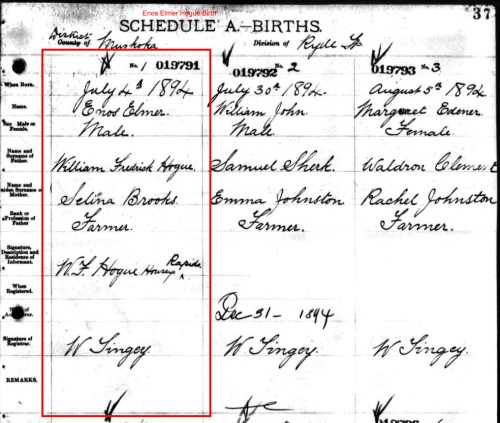 Enos Elmer Hogue Birth
37
SCHEDULE A.—BIRTHS.
District
County of Muskoka Division of Ryde Tp
No. 1 019791 019792 No. 2 019793 No. 3
When Born. July 4th 1894 July 30th 1894. August 5th 1894
Name. Enos Elmer. William John Margaret Edener
Sex Male or Female. Male. Male. Female.
Name and Surname of Father. William Fredrick Hogue. Samuel Sherk. Waldron Clement
Name and Maiden Surname of Mother. Selina Brooks Emma Johnston Rachel Johnston
Rank or Profession of Father Farmer. Farmer. Farmer.
Signature, Description and Residence of Informant. W. F. Hogue Houseys Rapids
When Registered. Dec 31 - 1894
Signature of Registrar. W Tingey. W Tingey. W Tingey.
REMARKS.